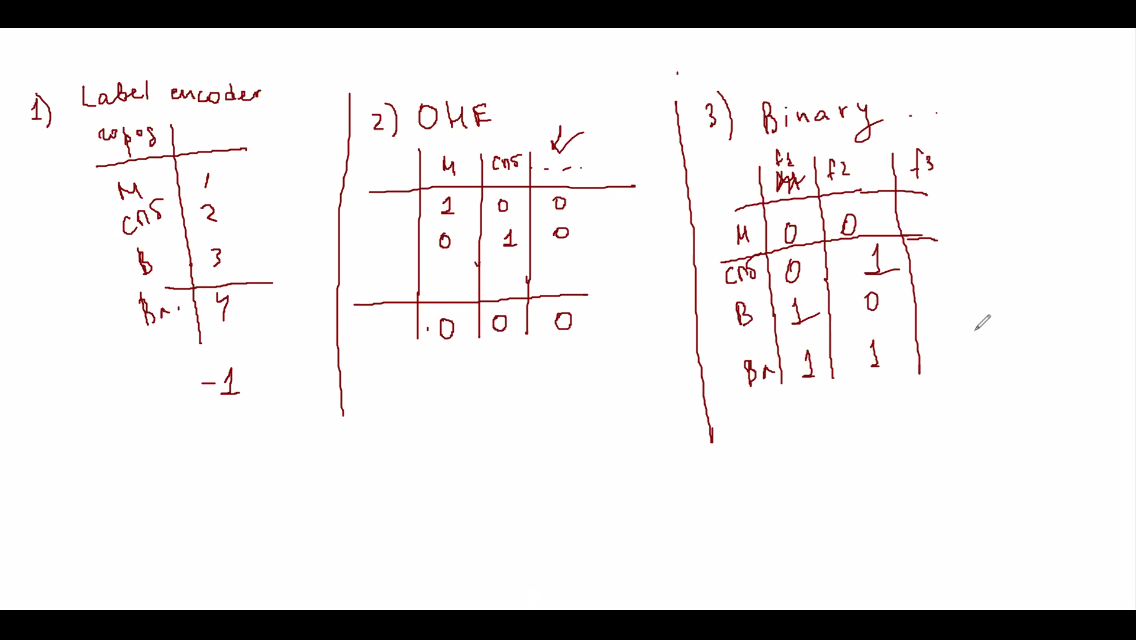 1) Label encoder
город
М 1
СПб 2
В 3
Вл. 4
-1
2) OHE
М СПб ....
1 0 0
0 1 0
.0 0 0
3) Binary ...
f1 f2 f3
М 0 0
СПб 0 1
В 1 0
Вл 1 1